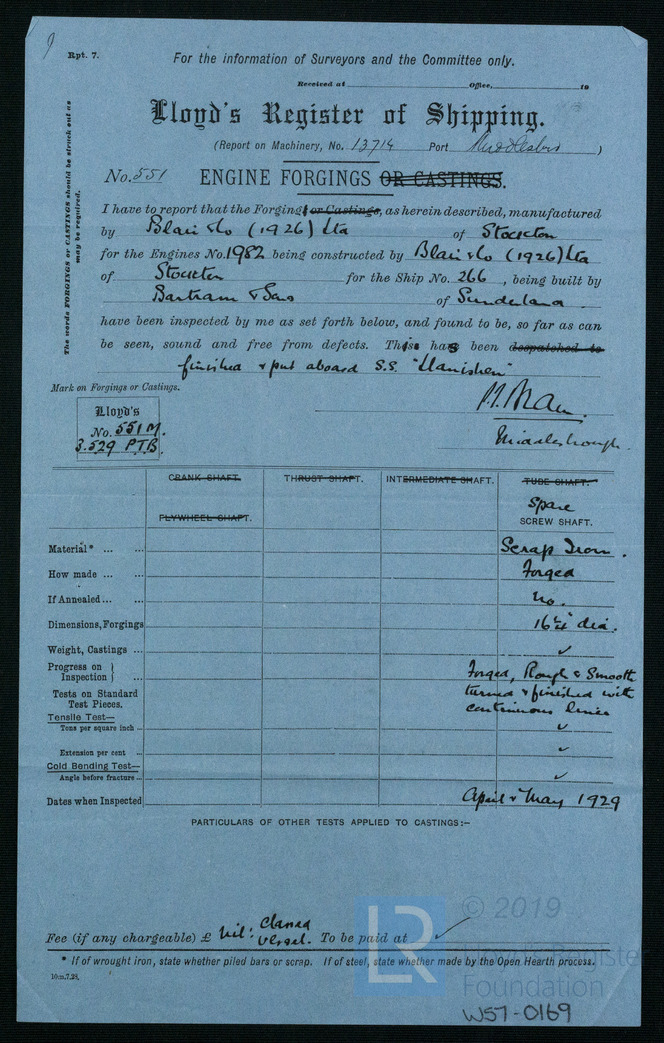 9
Rpt. 7.
For the information of Surveyors and the Committee only.
Received at Office, 19
Lloyd's Register of Shipping.
(Report on Machinery, No. 13714 Port Middlesbro )
No. 551 ENGINE FORGINGS OR CASTINGS.
The words FORGINGS or CASTINGS should be struck out as
may be required.
I have to report that the Forging or Castings, as herein described, manufactured
by Blair & Co (1926) Ltd of Stockton
for the Engines No. 1982 being constructed by Blair & Co (1926) Ltd
of Stockton for the Ship No. 266, being built by
Bartram & Sons of Sunderland
have been inspected by me as set forth below, and found to be, so far as can
be seen, sound and free from defects. This has been despatched to
finished & put aboard S.S. "Llanishen"
Mark on Forgings or Castings.
Lloyd's
No. 551 M.
3.529 P.T.B.
Middlesbrough.
CRANK SHAFT. THRUST SHAFT. INTERMEDIATE SHAFT. TUBE SHAFT.
Spare
FLYWHEEL SHAFT. SCREW SHAFT.
Material* ... ... Scrap Iron.
How made ... ... Forged
If Annealed... ... No.
Dimensions, Forgings 16¼" dia.
Weight, Castings ... ✓
Progress on Inspection } Forged, Rough & Smooth
Tests on Standard Test Pieces. turned & finished with
Tensile Test— continuous liner
Tons per square inch ... ✓
Extension per cent ... ✓
Cold Bending Test—
Angle before fracture... ✓
Dates when Inspected April & May 1929
PARTICULARS OF OTHER TESTS APPLIED TO CASTINGS:—
Fee (if any chargeable) £ Nil: Classed Vessel. To be paid at ✓
* If of wrought iron, state whether piled bars or scrap. If of steel, state whether made by the Open Hearth process.
10m.7.28.
LR
© 2019
Lloyd's Register
Foundation
W57-0169